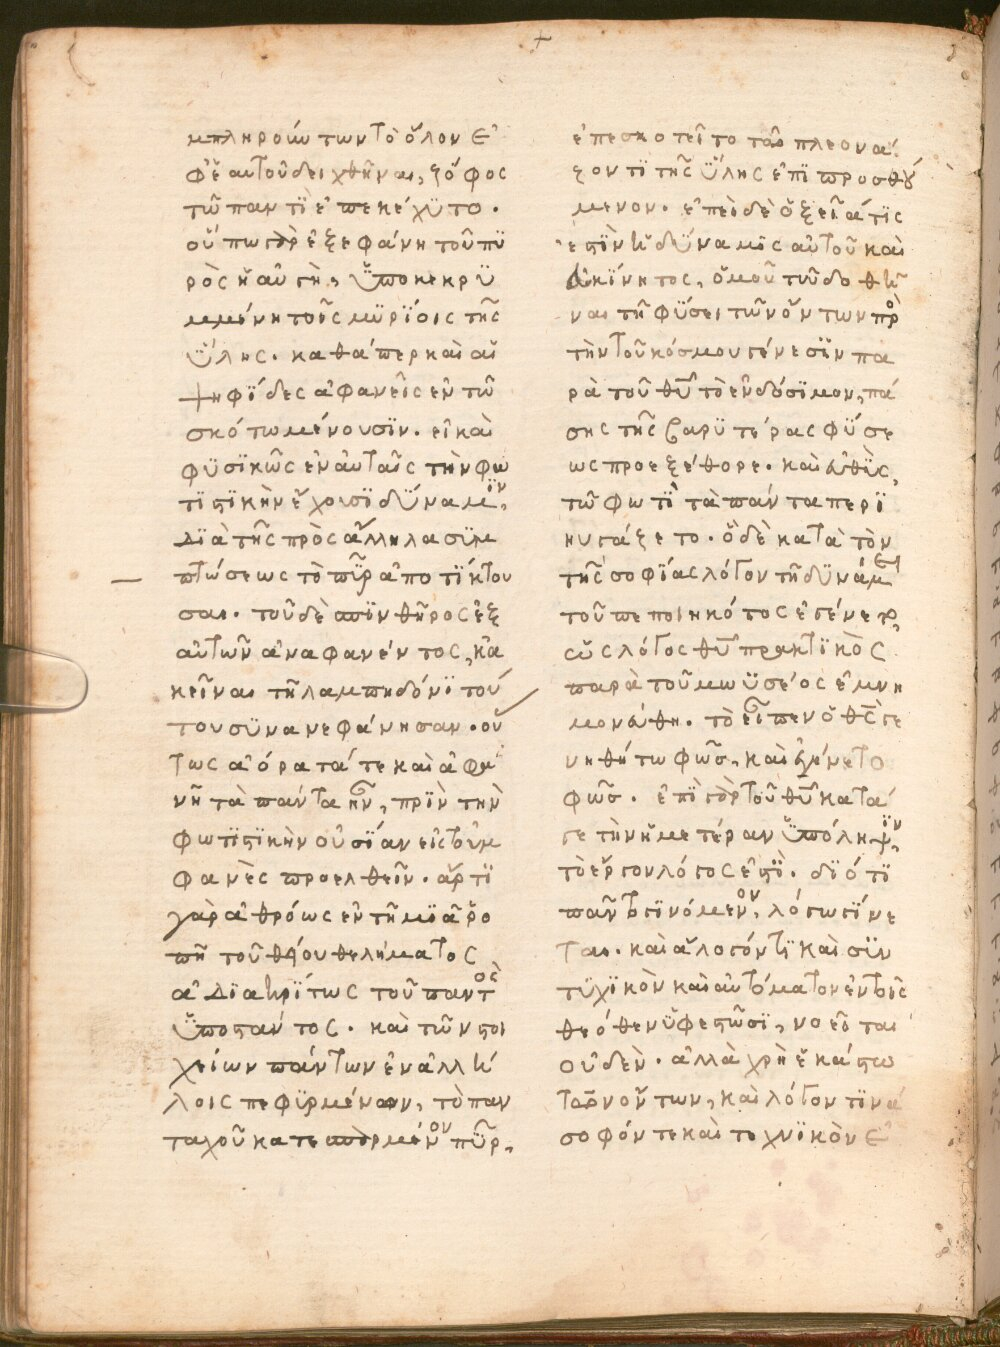 μπληρούντων τὸ ὅλον ἐ
φ' ἑαυτοῦ δειχθῆναι, ζόφος
τῶ παντῒ ἐπεκέχϋτο.
οὔπω γὰρ ἐξεφάνη τοῦ πϋ
ρὸς ἡ αὐγὴ, ϋποκεκρϋ
μμένη τοῖς μϋρΐοις τῆς
ϋλης. καθάπερ καὶ αἱ
ψηφΐδες ἀφανεῖς ἐν τῶ
σκότω μένουσϊν. εἰ καὶ
φϋσϊκῶς ἐν αὐταῖς τὴν φω
τϊστϊκὴν ἔχουσϊ δϋναμϊν,
δϊὰ τῆς πρὸς ἄλληλα σϋμ
πτώσεως τὸ πῦρ ἀποτϊκτου
σαι. τοῦ δὲ πϋνθῆρος ἐξ
αὐτῶν ἀναφανέντος, κἀ
κεῖναι τῆ λαμπηδόνϊ τού
του σϋνανεφάνησαν. οὕ
τως ἀόρατά τε καὶ ἀφα
νῆ τὰ πάντα ἦν, πρϊν τὴν
φωτϊστϊκὴν οὐσΐαν εἰς τοὐμ
φανὲς προελθεῖν. ἄρτϊ
γὰρ ἀθρόως ἐν τῆ μϊᾶ ῥο
πῆ τοῦ θείου θελήματος
ἀδϊακρΐτως τοῦ παντὸς
ϋποστάντος. καὶ τῶν στοι
χείων πάντων ἐν ἀλλή
λοις πεφϋρμένων, τὸ παν
ταχοῦ κατεσπαρμένον πῦρ,
ἐπεσκοτεῖτο τῶ πλεονά
ζοντϊ τῆς ϋλης ἐπϊπροσθού
μενον. ἐπεὶ δὲ ὀξεῖά τϊς
ἐστϊν ἡ δϋναμϊς αὐτοῦ καὶ
ἀκΐνητος, ὁμοῦ τῶ δοθῆ
ναι τῆ φϋσει τῶν ὄντων πρὸ
τὴν τοῦ κόσμου γένεσϊν πα
ρὰ τοῦ θῦ τὸ ἐνδόσϊμον, πά
σης τῆς βαρϋτέρας φϋσε
ως προεξέθορε. καὶ εὐθϋς,
τῶ φωτϊ τὰ πάντα περϊ
ηυγάζετο. ὁ δὲ κατὰ τὸν
τῆς σοφΐας λόγον τῆ δϋνάμει
τοῦ πεποιηκότος ἐγένετο,
ὡς λόγος θῦ πρακτϊκὸς
παρὰ τοῦ μωϋσέος ἐμνη
μονεύθη. τὸ εἶπεν ὁ θς γε
νηθήτω φῶς, καὶ ἐγένετο
φῶς. ἐπϊ γὰρ τοῦ θῦ κατά
γε τὴν ἡμετέραν ϋπόληψϊν,
τὸ ἔργον λόγος ἐστϊ. δϊότϊ
πᾶν τὸ γϊνόμενον, λόγω γϊνε
ται. καὶ ἄλογόν τϊ καὶ σϋν
τϋχϊκὸν καὶ αὐτόματον ἐν τοῖς
θεόθεν ϋφεστῶσϊ, νοεῖται
οὐδὲν. ἀλλὰ χρὴ ἑκάστω
τῶν ὄντων, καὶ λόγον τϊνὰ
σοφόν τε καὶ τεχνϊκὸν ἐ